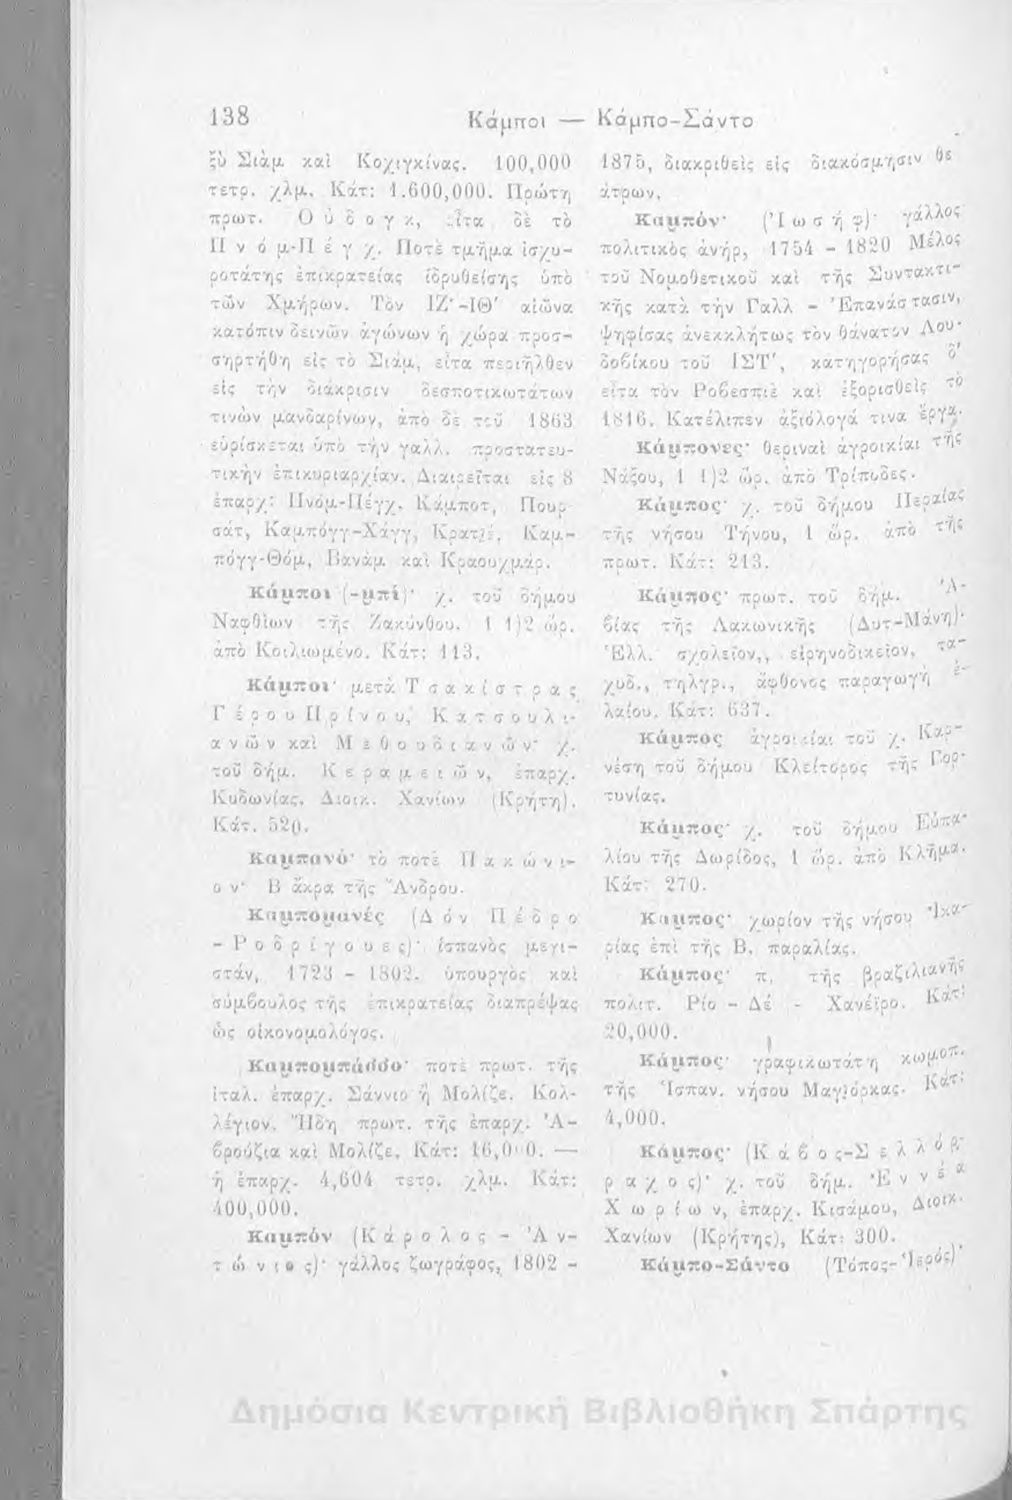 138
Κάμποι — Κάμπο-Σάντο
ξὺ Σιὰμ καὶ Κοχιγκίνας. 100,000
τετρ. χλμ. Κάτ: 1.600,000. Πρώτη
πρωτ. Ο ὐ δ ο γ κ, εἶτα δὲ τὸ
Π ν ό μ-Π έ γ χ. Ποτὲ τμῆμα ἰσχυ-
ροτάτης ἐπικρατείας ἱδρυθείσης ὑπὸ
τῶν Χμήρων. Τὸν ΙΖ'-ΙΘ' αἰῶνα
κατόπιν δεινῶν ἀγώνων ἡ χώρα προσ-
σηρτήθη εἰς τὸ Σιάμ, εἶτα περιῆλθεν
εἰς τὴν διάκρισιν δεσποτικωτάτων
τινῶν μανδαρίνων, ἀπὸ δὲ τοῦ 1863
εὑρίσκεται ὑπὸ τὴν γαλλ. προστατευ-
τικὴν ἐπικυριαρχίαν. Διαιρεῖται εἰς 8
ἐπαρχ: Πνόμ-Πέγχ, Κάμποτ, Πουρ
σάτ, Καμπόγγ-Χάγγ, Κρατ, Καμ-
πόγγ-Θόμ, Βανάμ καὶ Κραουχμάρ.
Κάμποι (-μπί)· χ. τοῦ δήμου
Ναφθίων τῆς Ζακύνθου. 1 1)2 ὡρ.
ἀπὸ Κοιλιωμένο. Κάτ: 113.
Κάμποι· μετὰ Τ σ α κ ί σ τ ρ α ς
Γ έ ρ ο υ Π ρ ί ν ο υ, Κ α τ σ ο υ λ ι-
α ν ῶ ν καὶ Μ ε θ ο υ δ ι α ν ῶ ν· χ.
τοῦ δήμ. Κ ε ρ α μ ε ι ῶ ν, ἐπαρχ.
Κυδωνίας, Διοικ. Χανίων (Κρήτη),
Κάτ. 520.
Καμπανό· τὸ ποτὲ Π α κ ώ ν ι-
ο ν· Β ἄκρα τῆς Ἄνδρου.
Καμπομανές (Δ ὸ ν Π έ δ ρ ο
- Ρ ο δ ρ ί γ ο υ ε ς)· ἱσπανὸς μεγι-
στάν, 1723 - 1802. ὑπουργὸς καὶ
σύμβουλος τῆς ἐπικρατείας διαπρέψας
ὡς οἰκονομολόγος.
Καμπομπάσσο· ποτὲ πρωτ. τῆς
ἰταλ. ἐπαρχ. Σάννιο ἢ Μολίζε. Κολ-
λέγιον. Ἤδη πρωτ. τῆς ἐπαρχ. Ἀ-
βρούζια καὶ Μολίζε. Κάτ: 16,000. —
ἡ ἐπαρχ. 4,604 τετρ. χλμ. Κάτ:
400,000.
Καμπόν (Κ ά ρ ο λ ο ς - Ἀ ν-
τ ώ ν ι ο ς)· γάλλος ζωγράφος, 1802 -
1875, διακριθεὶς εἰς διακόσμησιν θε
άτρων.
Καμπόν· (Ἰ ω σ ὴ φ)· γάλλος
πολιτικὸς ἀνήρ, 1754 - 1820 Μέλος
τοῦ Νομοθετικοῦ καὶ τῆς Συντακτι-
κῆς κατὰ τὴν Γαλλ - Ἐπανάστασιν,
ψηφίσας ἀνεκκλήτως τὸν θάνατον Λου-
δοβίκου τοῦ ΙΣΤ', κατηγορήσας δ'
εἶτα τὸν Ροβεσπιὲ καὶ ἐξορισθεὶς τὸ
1816. Κατέλιπεν ἀξιόλογά τινα ἔργα.
Κάμπονες· θεριναὶ ἀγροικίαι τῆς
Νάξου, 1 1)2 ὡρ. ἀπὸ Τρίποδες.
Κάμπος· χ. τοῦ δήμου Περαίας
τῆς νήσου Τήνου, 1 ὡρ. ἀπὸ τῆς
πρωτ. Κάτ: 213.
Κάμπος· πρωτ. τοῦ δήμ. Ἀ-
βίας τῆς Λακωνικῆς (Δυτ-Μάνη)·
Ἑλλ. σχολεῖον,, εἰρηνοδικεῖον, τα-
χυδ., τηλγρ., ἄφθονος παραγωγὴ ἐ-
λαίου. Κάτ: 637.
Κάμπος ἀγροικίαι τοῦ χ. Καρ-
νέση τοῦ δήμου Κλείτορος τῆς Γορ-
τυνίας.
Κάμπος· χ. τοῦ δήμου Εὐπα-
λίου τῆς Δωρίδος, 1 ὡρ. ἀπὸ Κλῆμα.
Κάτ: 270.
Κάμπος· χωρίον τῆς νήσου Ἰκα-
ρίας ἐπὶ τῆς Β. παραλίας.
Κάμπος· π. τῆς βραζιλιανῆς
πολιτ. Ρίο - Δὲ - Χανέϊρο. Κάτ:
20,000.
Κάμπος· γραφικωτάτη κωμοπ.
τῆς Ἱσπαν. νήσου Μαγιόρκας. Κάτ:
4,000.
Κάμπος· (Κ ά β ο ς-Σ ε λ λ ό β
ρ α χ ο ς)· χ. τοῦ δήμ. Ἐ ν ν ε α
Χ ω ρ ί ω ν, ἐπαρχ. Κισάμου, Διοικ.
Χανίων (Κρήτης), Κάτ: 300.
Κάμπο-Σάντο (Τόπος-Ἱερός)
Δημόσια Κεντρική Βιβλιοθήκη Σπάρτης